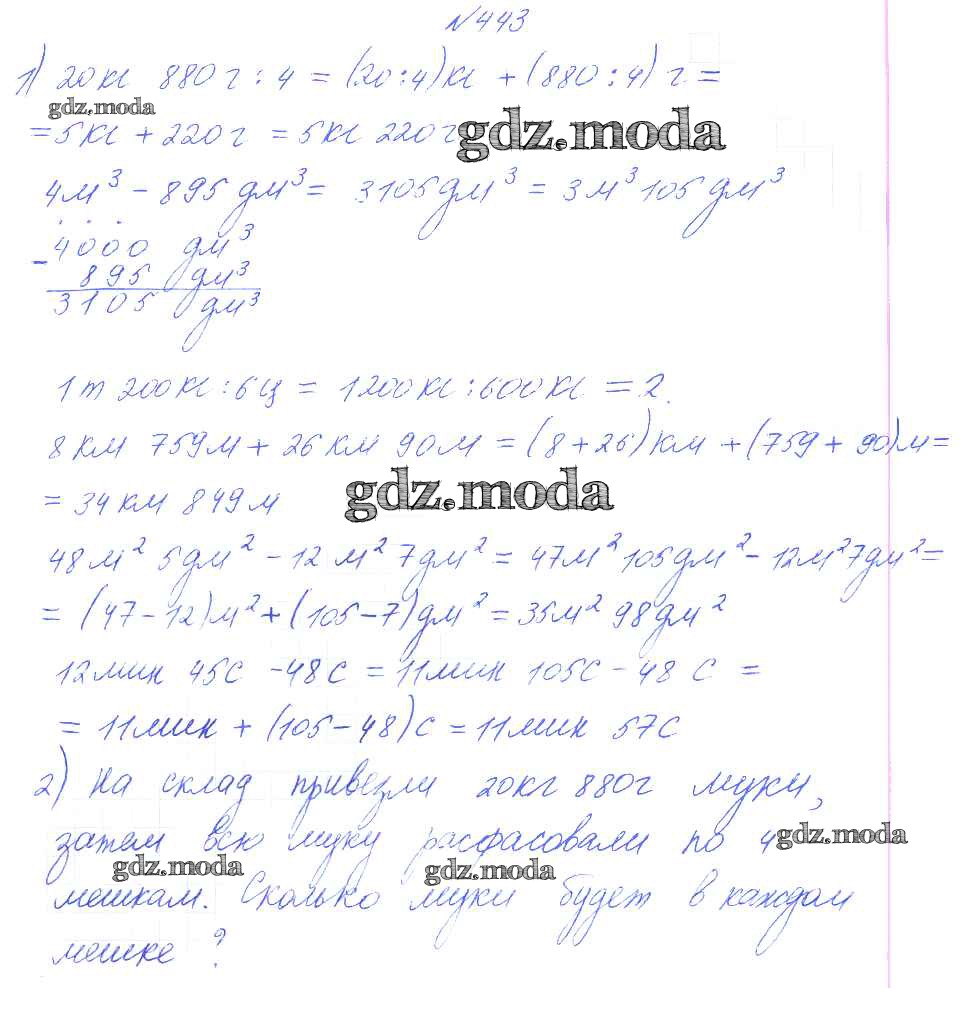 N443
1) 20 кг 880 г : 4 = (20 : 4) кг + (880 : 4) г =
gdz.moda
= 5 кг + 220 г = 5 кг 220 г
gdz.moda
4 м³ - 895 дм³ = 3105 дм³ = 3 м³ 105 дм³
- 4000 дм³
895 дм³
3105 дм³
1 т 200 кг : 6 ц = 1200 кг : 600 кг = 2.
8 км 759 м + 26 км 90 м = (8 + 26) км + (759 + 90) м =
= 34 км 849 м
gdz.moda
48 м² 5 дм² - 12 м² 7 дм² = 47 м² 105 дм² - 12 м² 7 дм² =
= (47 - 12) м² + (105 - 7) дм² = 35 м² 98 дм²
12 мин 45 с - 48 с = 11 мин 105 с - 48 с =
= 11 мин + (105 - 48) с = 11 мин 57 с
2) На склад привезли 20 кг 880 г муки,
затем всю муку расфасовали по 4
gdz.moda
gdz.moda
gdz.moda
мешкам. Сколько муки будет в каждом
мешке ?